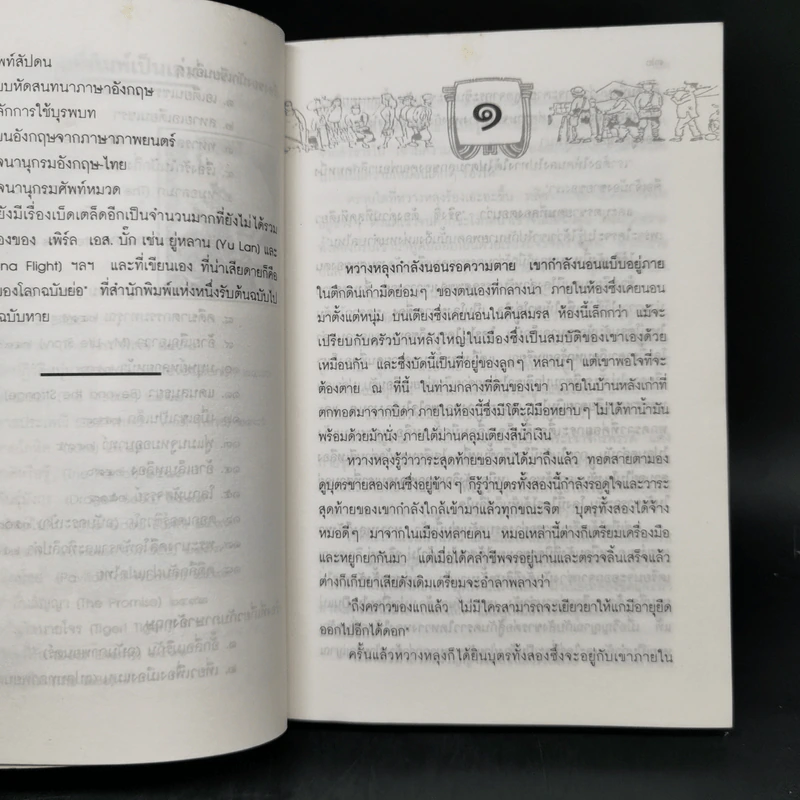 พท์สัปดน
บบหัดสนทนาภาษาอังกฤษ
ลักการใช้บุรพบท
ยนอังกฤษจากภาษาภาพยนตร์
จนานุกรมอังกฤษ-ไทย
จนานุกรมศัพท์หมวด
ยังมีเรื่องเบ็ดเตล็ดอีกเป็นจำนวนมากที่ยังไม่ได้รวม
องของ เพิร์ล เอส. บั๊ก เช่น ยู่หลาน (Yu Lan) และ
na Flight) ฯลฯ และที่เขียนเอง ที่น่าเสียดายก็คือ
ของโลกฉบับย่อ" ที่สำนักพิมพ์แห่งหนึ่งรับต้นฉบับไป
ฉบับหาย
๑
หวางหลุงกำลังนอนรอความตาย เขากำลังนอนแบ็บอยู่ภาย
ในตึกดินเก่ามืดย่อมๆ ของตนเองที่กลางนา ภายในห้องซึ่งเคยนอน
มาตั้งแต่หนุ่ม บนเตียงซึ่งเคยนอนในคืนสมรส ห้องนี้เล็กกว่า แม้จะ
เปรียบกับครัวบ้านหลังใหญ่ในเมืองซึ่งเป็นสมบัติของเขาเองด้วย
เหมือนกัน และซึ่งบัดนี้เป็นที่อยู่ของลูกๆ หลานๆ แต่เขาพอใจที่จะ
ต้องตาย ณ ที่นี้ ในท่ามกลางที่ดินของเขา ภายในบ้านหลังเก่าที่
ตกทอดมาจากบิดา ภายในห้องนี้ซึ่งมีโต๊ะฝีมือหยาบๆ ไม่ได้ทาน้ำมัน
พร้อมด้วยม้านั่ง ภายใต้ม่านคลุมเตียงสีน้ำเงิน
หวางหลุงรู้ว่าวาระสุดท้ายของตนได้มาถึงแล้ว ทอดสายตามอง
ดูบุตรชายสองคนซึ่งอยู่ข้างๆ ก็รู้ว่าบุตรทั้งสองนี้กำลังรอดูใจและวาระ
สุดท้ายของเขากำลังใกล้เข้ามาแล้วทุกขณะจิต บุตรทั้งสองได้จ้าง
หมอดีๆ มาจากในเมืองหลายคน หมอเหล่านี้ต่างก็เตรียมเครื่องมือ
และหยูกยากันมา แต่เมื่อได้คลำชีพจรอยู่นานและตรวจลิ้นเสร็จแล้ว
ต่างก็เก็บยาเสียดังเดิมเตรียมจะอำลาพลางว่า
"ถึงคราวของแกแล้ว ไม่มีใครสามารถจะเยียวยาให้แกมีอายุยืด
ออกไปอีกได้ดอก"
ครั้นแล้วหวางหลุงก็ได้ยินบุตรทั้งสองซึ่งจะอยู่กับเขาภายใน